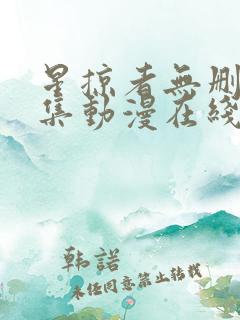 星掠者無删
集動漫在綫
韩諾
未经同意禁止转载